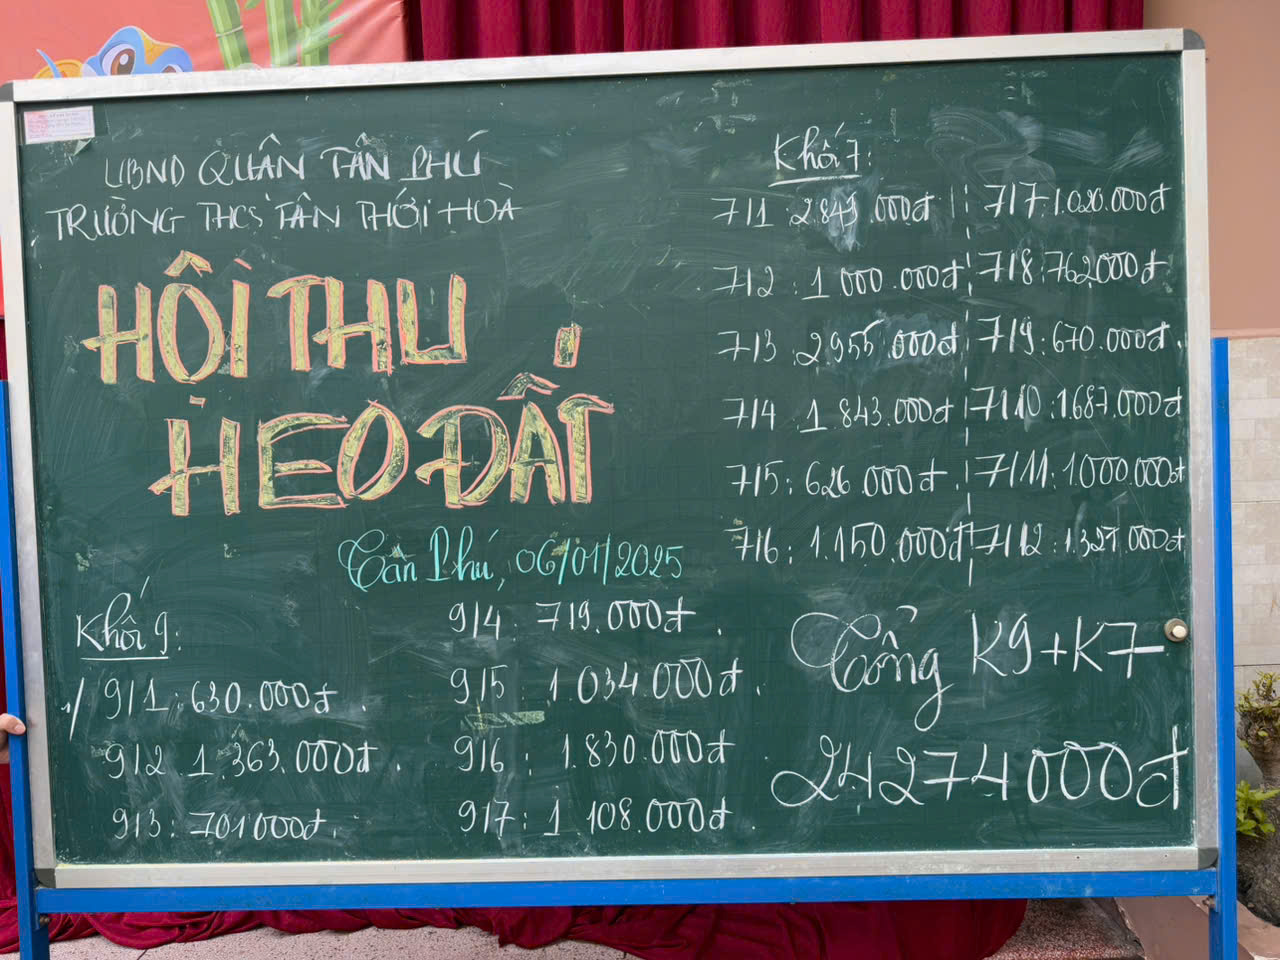 UBND QUẬN TÂN PHÚ
TRƯỜNG THCS TÂN THỚI HOÀ
HỘI THU
HEO ĐẤT
Tân Phú, 06/01/2025
Khối 9:
9/1: 630.000đ
9/2: 1.363.000đ
9/3: 701000đ
9/4: 719.000đ
9/5: 1.034.000đ
9/6: 1.830.000đ
9/7: 1.108.000đ
Khối 7:
7/1: 2.843.000đ
7/2: 1.000.000đ
7/3: 2.955.000đ
7/4: 1.843.000đ
7/5: 626.000đ
7/6: 1.150.000đ
7/7: 1.020.000đ
7/8: 762.000đ
7/9: 670.000đ
7/10: 1.687.000đ
7/11: 1.000.000đ
7/12: 1.327.000đ
Tổng K9+K7
24.274.000đ